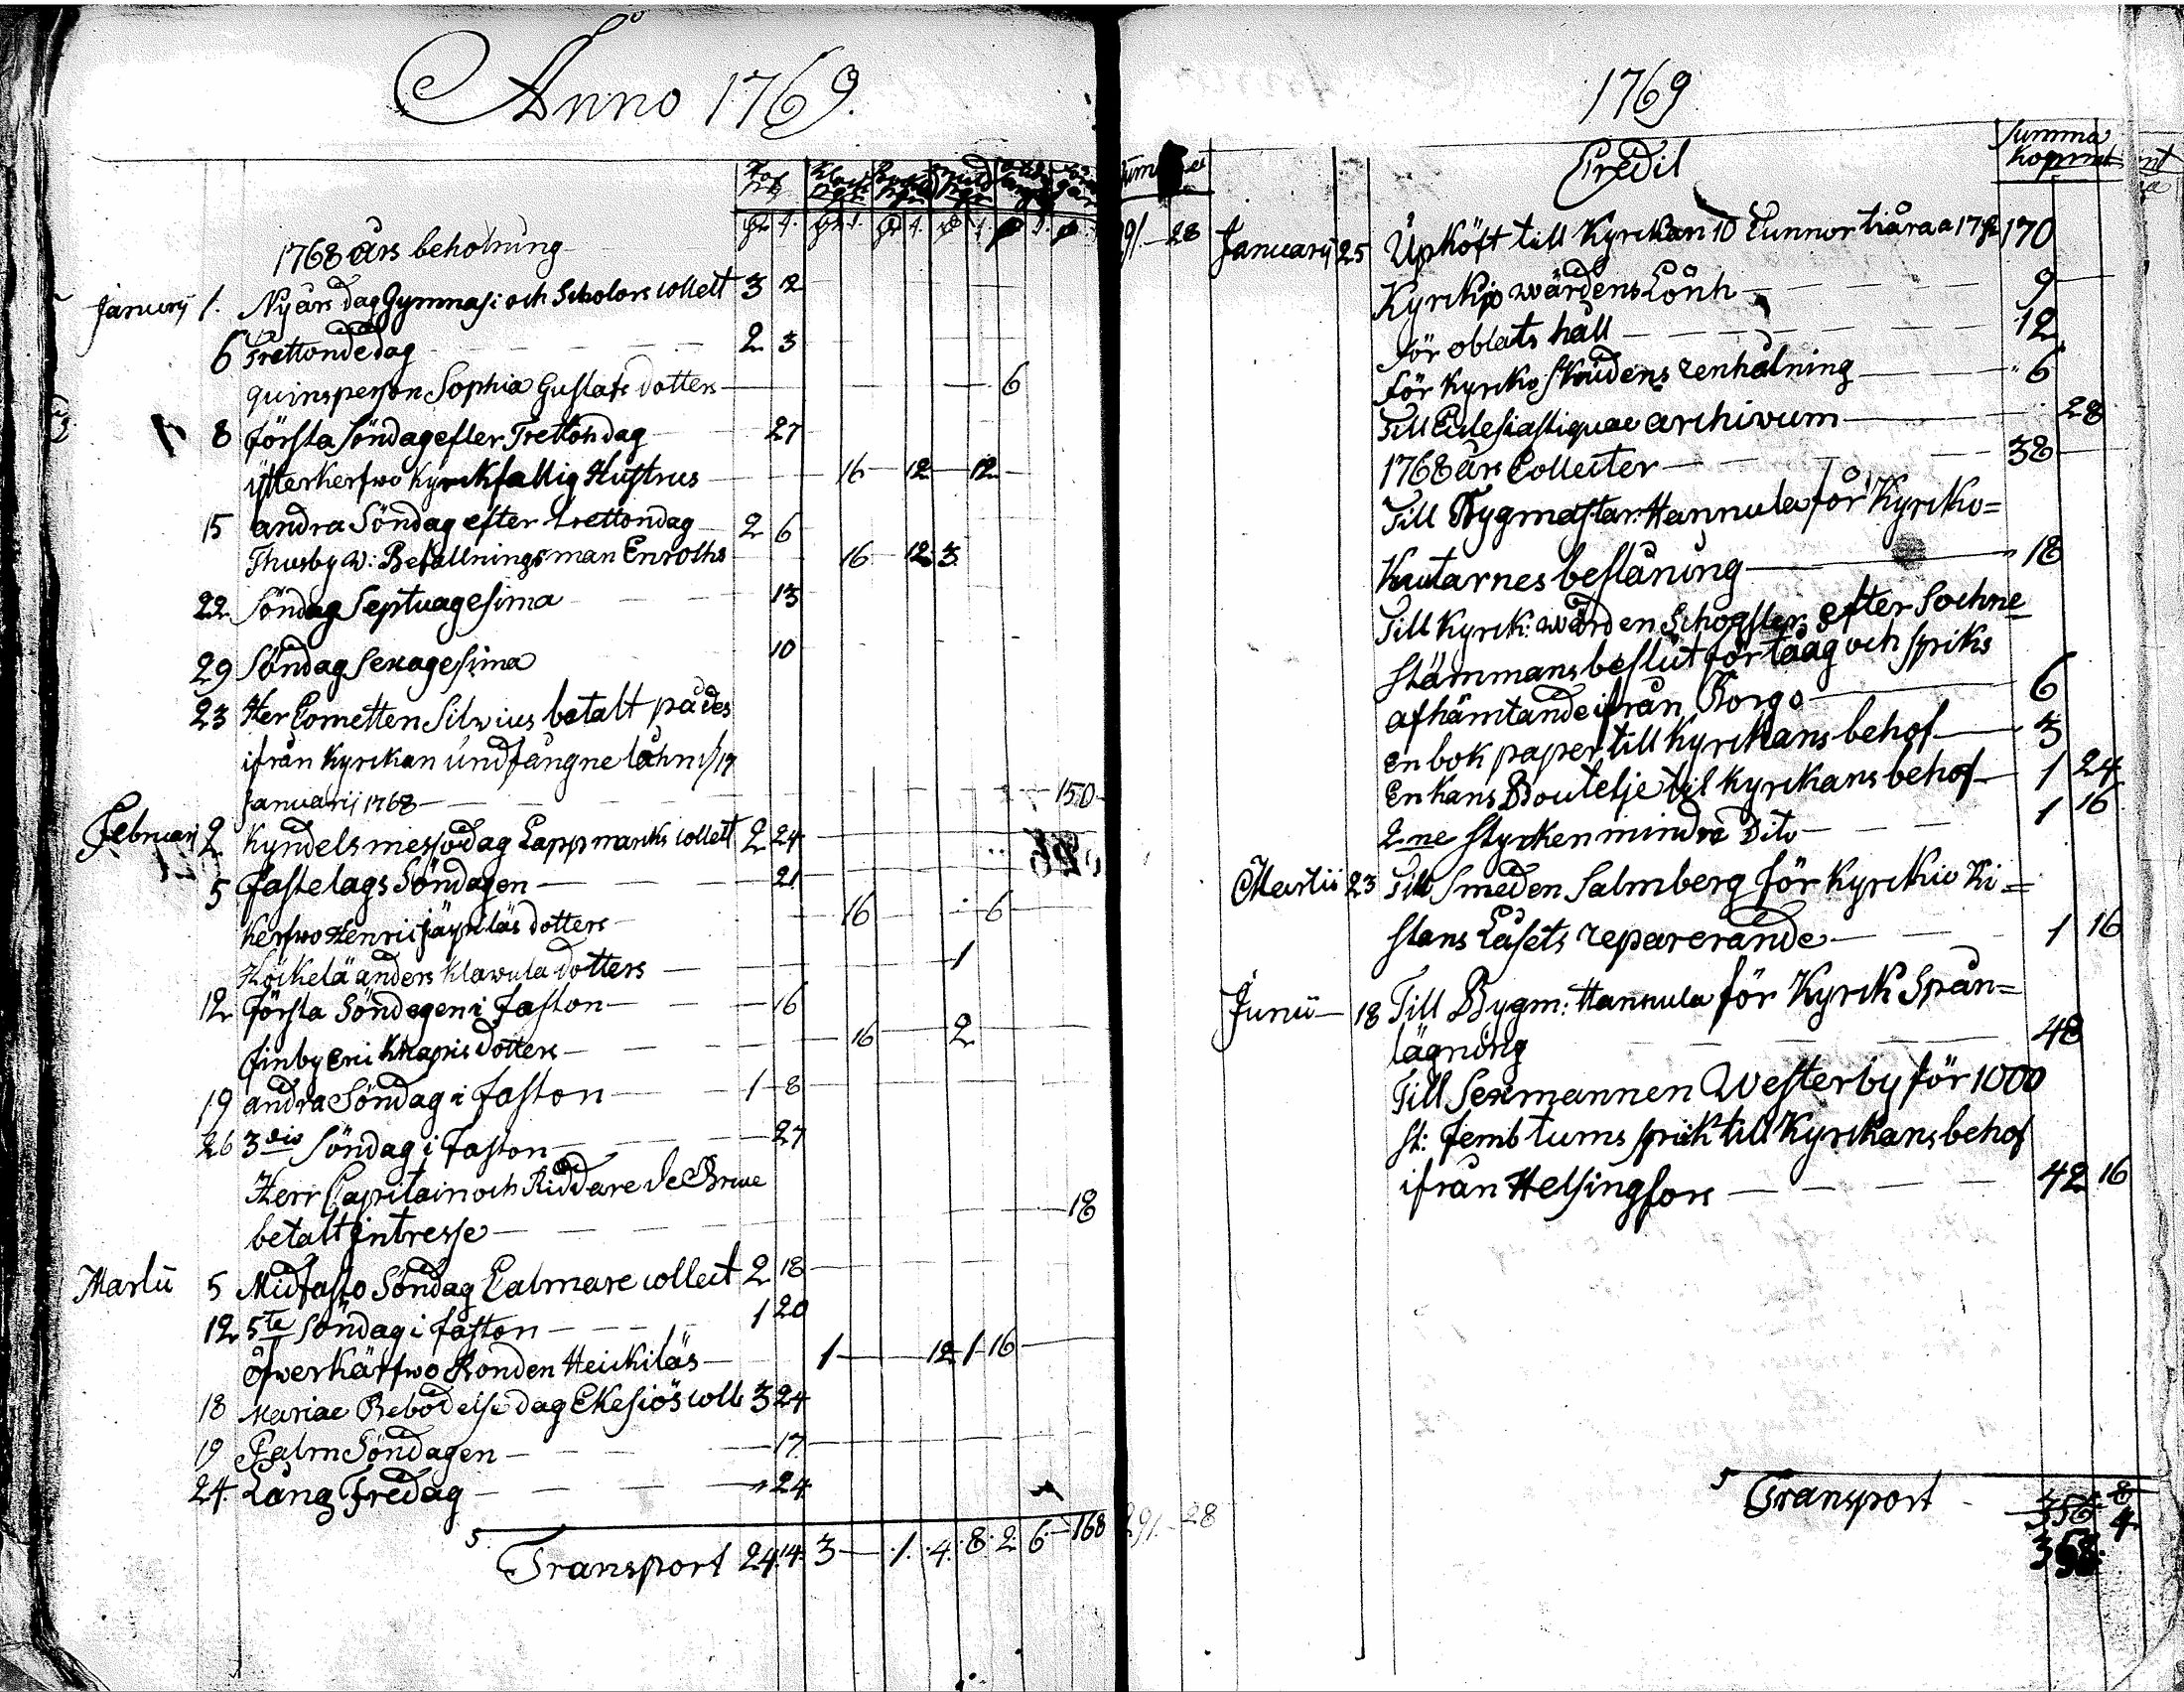 Anno 1769.
1768 års behoïning
Januarij 1. Nyårs dag Gymnasi och Scholors collect 3 12
6 Trettonde dag 2 3
quinsperson Sophia Gustafs dotters 6
8 första Söndag efter Trettondag 27
ytterkerfwo Kyrckfallig Hustrus 16 12 12
15 andra Söndag efter trettondag 2 6
Thusby w: Befallningsman Enroths 16 12 3
22 Söndag Septuagesima 13
29 Söndag Sexagesima 10
23 Her Cornetten Silwius betalt på des
ifrån Kyrckan undfångne låhn
Januarij 1768 150
Februarij 2 Kyndelsmesso dag Lappmarks collect 2 24
5 fastelags Söndagen 21
Kerfwo Henric dotters 16 6
anders Klawula dotters 1
12 första Söndagen i faston 16
finby Knapis dotters 16 2
19 andra Söndag i faston 1 8
26 3die Söndag i faston 27
Herr Capitain och Riddare de
betalt intresse 18
Martii 5 Midfasto Söndag Calmare collect 2 18
12 5te Söndag i faston 1 20
öfwerkärfwo Ronden Heickiläs 1 12 1 16
18 Mariae Bebodelse dag Ekesiös coll: 3 24
19 Palm Söndagen 17
24 Lång Fredag 24
Transport 24 14 3 1 4 8 2 6 168
1769
Credit
Summa
Kopmt
91 28
Januarij 25 Upköft till Kyrckan 10 Tunnor tiära a 17 170
Kyrckio wärdens Lönh 9
för oblats håll 12
för Kyrcko Skrudens renhålning 6
Till Eclesiastiquae archivum 28
1768 års Collecter 38
Till Bygmästar: Hannula för Kyrcko=
Knutarnes beslåning 18
Till Kyrck: wärden efter Sochne
stämmans beslut för tåag och spiks
afhämtande ifrån Borgo 6
en bok paper till Kyrckans behof 3
En kans Boutelje til Kyrckans behof 1 24
2ne stycken mindre Dito 1 16
Martii 23 Till Smeden Salmberg för Kyrckio Ki=
stans Låsets reparerande 1 16
Junii 18 Till Bygm: Hannula för Kyrck Spån=
lägning 48
Till Sexmannen Westerby för 1000
st: femb tums spik till Kyrckans behof
ifrån Helsingfors 42 16
291 28
Transport 356 8
358 4